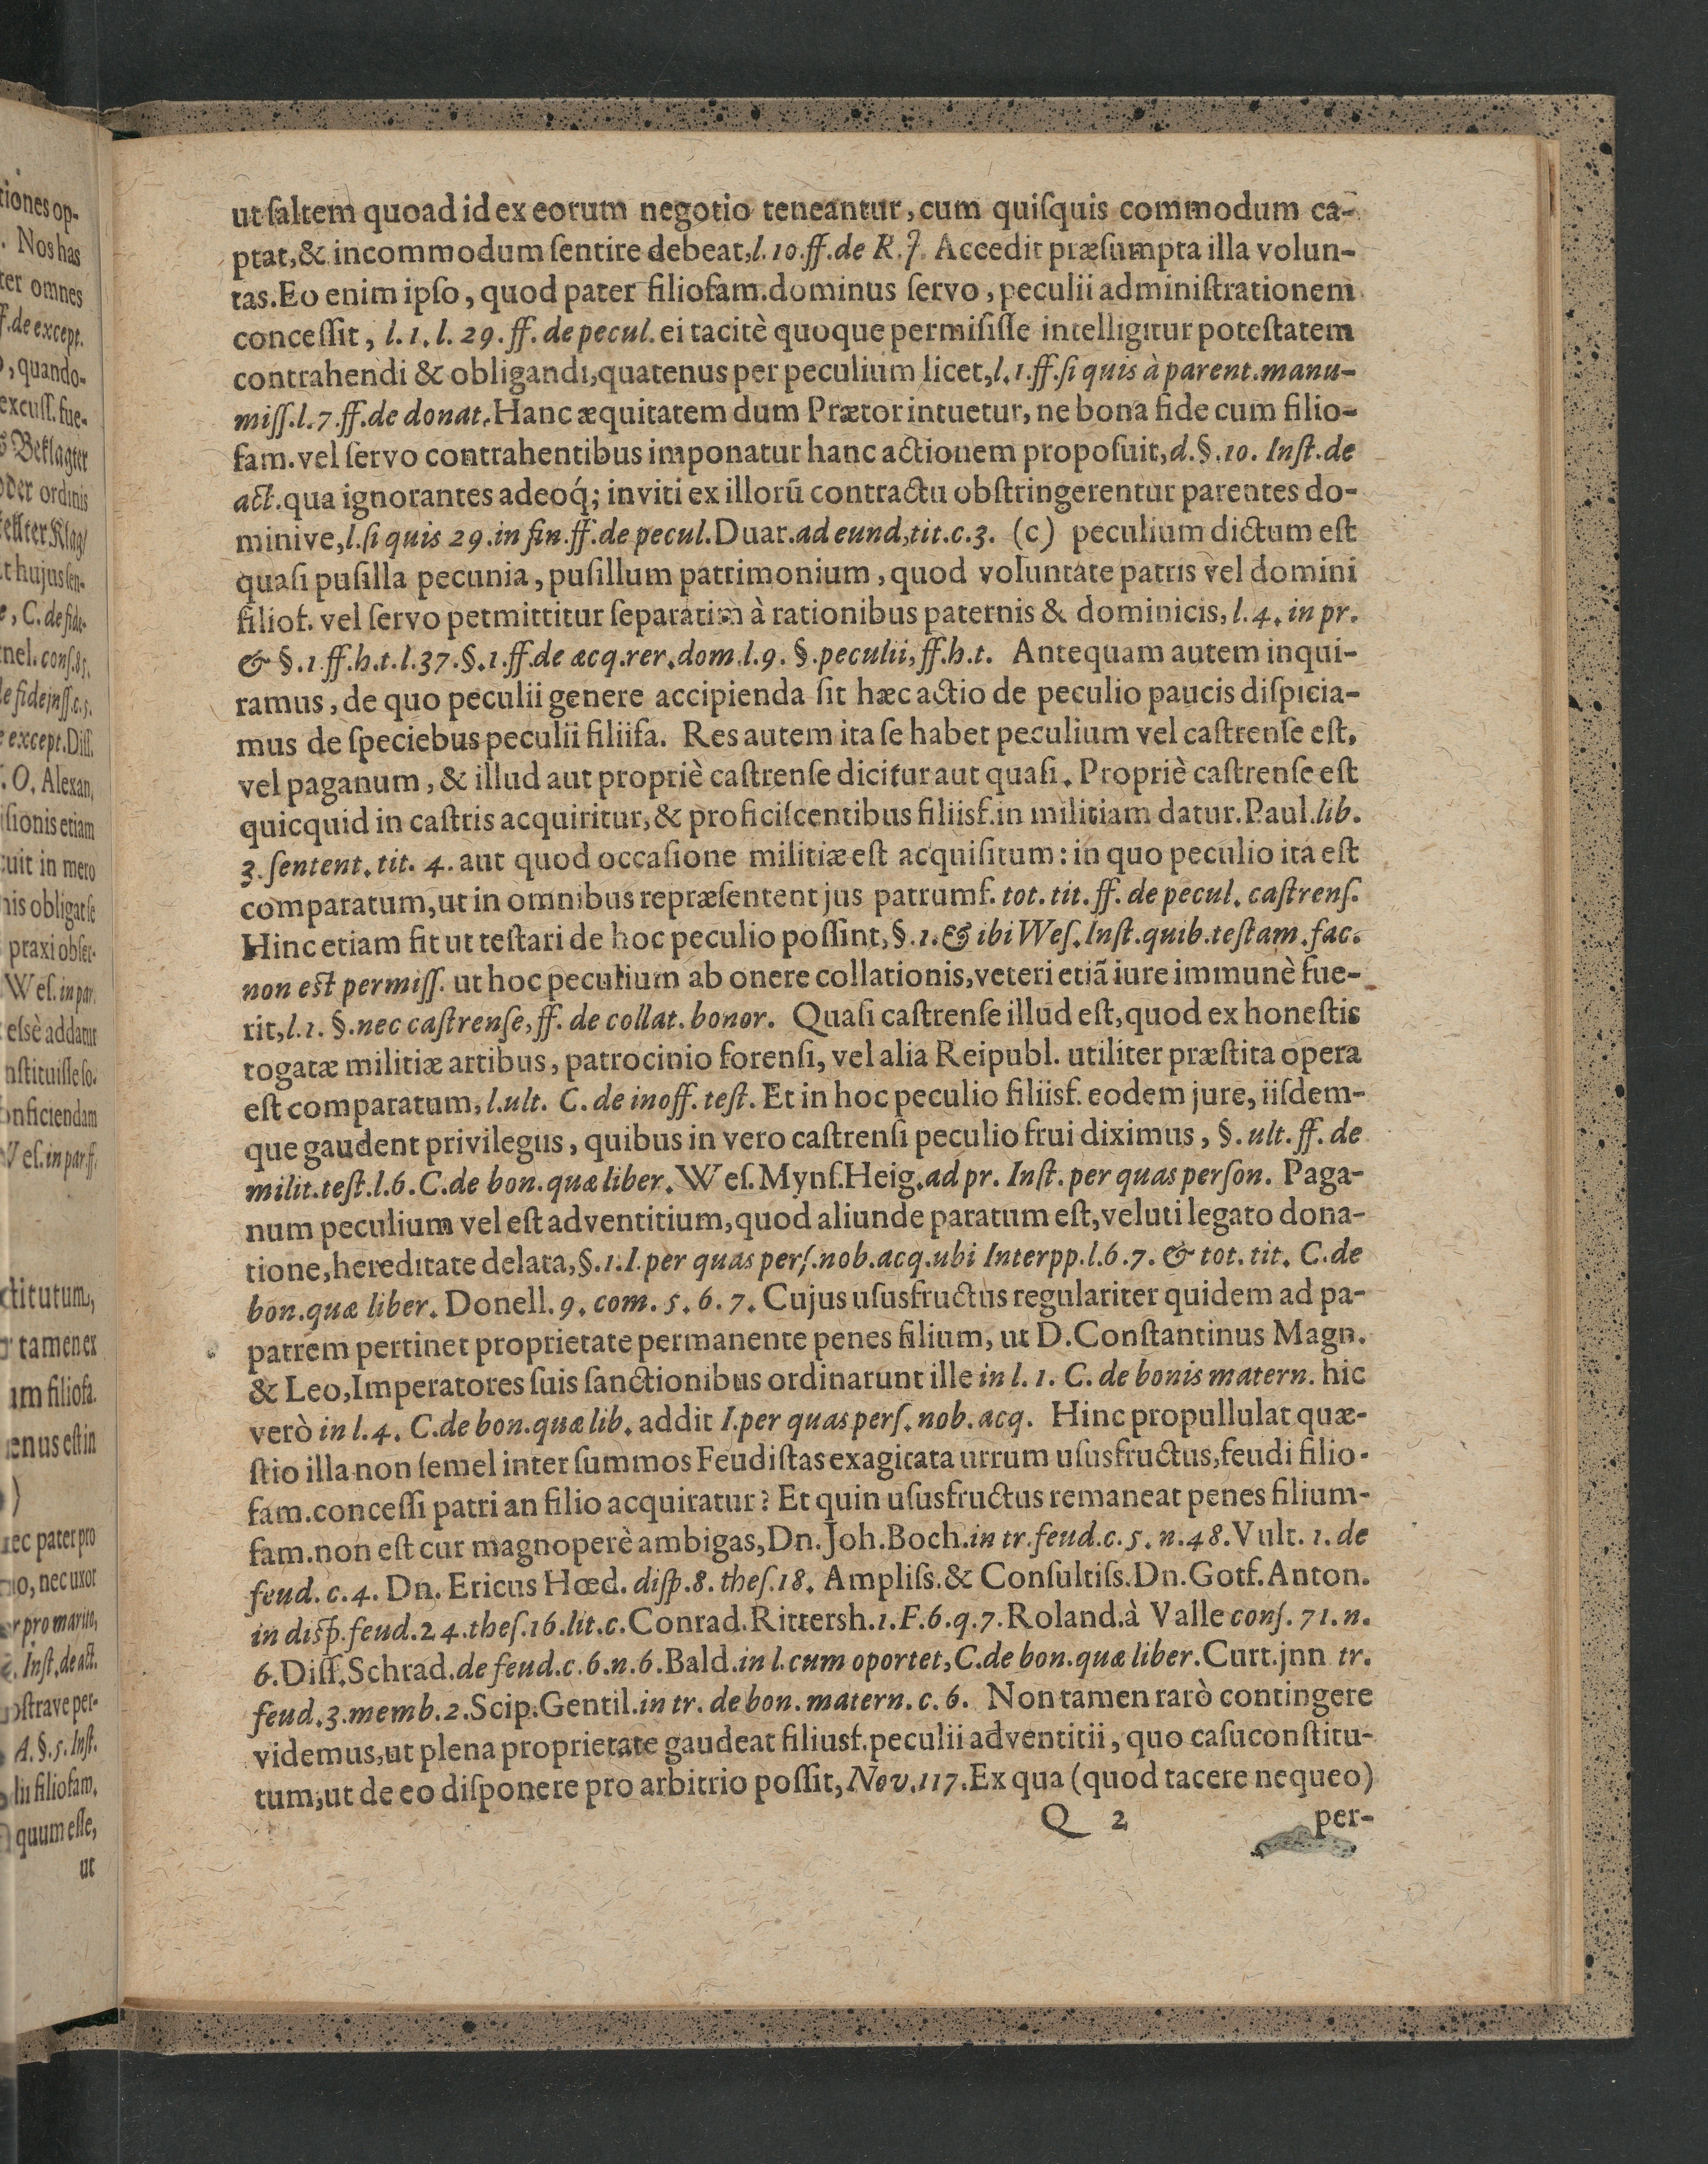 ut ſaltem quoad id ex eorum negotio teneantur, cum quiſquis commodum ca-
ptat, & incommodum ſentire debeat, l. 10. ff. de R. J. Accedit præſumpta illa volun-
tas. Eo enim ipſo, quod pater filiofam. dominus ſervo, peculii adminiſtrationem
conceſſit, l. 1. l. 29. ff. de pecul. ei tacitè quoque permiſiſſe intelligitur poteſtatem
contrahendi & obligandi, quatenus per peculium licet, l. 1. ff. ſi quis à parent. manu-
miſſ. l. 7. ff. de donat. Hanc æquitatem dum Prætor intuetur, ne bona fide cum filio-
fam. vel ſervo contrahentibus imponatur hanc actionem propoſuit, d. §. 10. Inſt. de
act. qua ignorantes adeoq́; inviti ex illorũ contractu obſtringerentur parentes do-
minive, l. ſi quis 29. in fin. ff. de pecul. Duar. ad eund, tit. c. 3. (c) peculium dictum eſt
quaſi puſilla pecunia, puſillum patrimonium, quod voluntate patris vel domini
filiof. vel ſervo petmittitur ſeparatim à rationibus paternis & dominicis, l. 4. in pr.
& §. 1 ff. h. t. l. 37. §. 1. ff. de acq. rer. dom. l. 9. §. peculii, ff. h. t. Antequam autem inqui-
ramus, de quo peculii genere accipienda ſit hæc actio de peculio paucis diſpicia-
mus de ſpeciebus peculii filiifa. Res autem ita ſe habet peculium vel caſtrenſe eſt,
vel paganum, & illud aut propriè caſtrenſe dicitur aut quaſi. Propriè caſtrenſe eſt
quicquid in caſtris acquiritur, & proficiſcentibus filiisf. in militiam datur. Paul. lib.
3. ſentent. tit. 4. aut quod occaſione militiæ eſt acquiſitum: in quo peculio ita eſt
comparatum, ut in omnibus repræſentent jus patrumf. tot. tit. ff. de pecul. caſtrenſ.
Hinc etiam fit ut teſtari de hoc peculio poſſint, §. 1. & ibi Weſ. Inſt. quib. teſtam. fac.
non eſt permiſſ. ut hoc peculium ab onere collationis, veteri etiã iure immunè fue-
rit, l. 1. §. nec caſtrenſe, ff. de collat. bonor. Quaſi caſtrenſe illud eſt, quod ex honeſtis
togatæ militiæ artibus, patrocinio forenſi, vel alia Reipubl. utiliter præſtita opera
eſt comparatum, l. ult. C. de inoff. teſt. Et in hoc peculio filiisf. eodem jure, iiſdem-
que gaudent privilegiis, quibus in vero caſtrenſi peculio frui diximus, §. ult. ff. de
milit. teſt. l. 6. C. de bon. quæ liber. Weſ. Mynſ. Heig. ad pr. Inſt. per quas perſon. Paga-
num peculium vel eſt adventitium, quod aliunde paratum eſt, veluti legato dona-
tione, hereditate delata, §. 1. I. per quas perſ. nob. acq. ubi Interpp. l. 6. 7. & tot. tit. C. de
bon. quæ liber. Donell. 9. com. 5. 6. 7. Cujus uſusfructus regulariter quidem ad pa-
patrem pertinet proprietate permanente penes filium, ut D. Conſtantinus Magn.
& Leo, Imperatores ſuis ſanctionibus ordinarunt ille in l. 1. C. de bonis matern. hic
verò in l. 4. C. de bon. quæ lib. addit I. per quas perſ. nob. acq. Hinc propullulat quæ-
ſtio illa non ſemel inter ſummos Feudiſtas exagitata utrum uſusfructus, feudi filio-
fam. conceſſi patri an filio acquiratur? Et quin uſusfructus remaneat penes filium-
fam. non eſt cur magnoperè ambigas, Dn. Joh. Boch. in tr. feud. c. 5. n. 48. Vult. 1. de
feud. c. 4. Dn. Ericus Hœd. diſp. 8. theſ. 18. Ampliſs. & Conſultiſs. Dn. Gotf. Anton.
in diſp. feud. 24. theſ. 16. lit. c. Conrad. Rittersh. 1. F. 6. q. 7. Roland. à Valle conſ. 71. n.
6. Diſſ. Schrad. de feud. c. 6. n. 6. Bald. in l. cum oportet, C. de bon. quæ liber. Curt. jnn tr.
feud. 3. memb. 2. Scip. Gentil. in tr. de bon. matern. c. 6. Non tamen rarò contingere
videmus, ut plena proprietate gaudeat filiusf. peculii adventitii, quo caſu conſtitu-
tum, ut de eo diſponere pro arbitrio poſſit, Nov. 117. Ex qua (quod tacere nequeo)
Q 2 per-